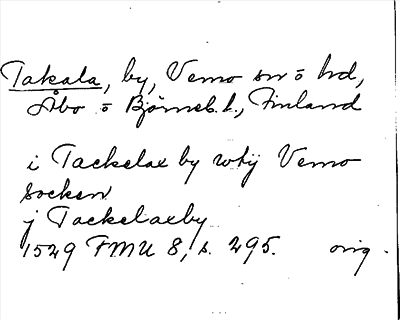 Takala, by, Vemo sn o hd,
Åbo o Björneb. l., Finland
i Tackelax by wtij Vemo
socken
j Tackelaxeby
1529 FMU 8, s. 295. orig.